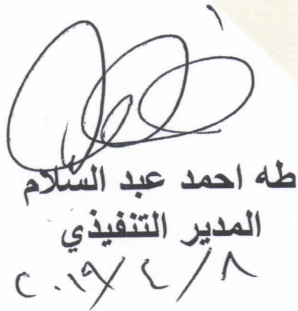 طه احمد عبد السلام
المدير التنفيذي
٢٠١٩/٤/٨